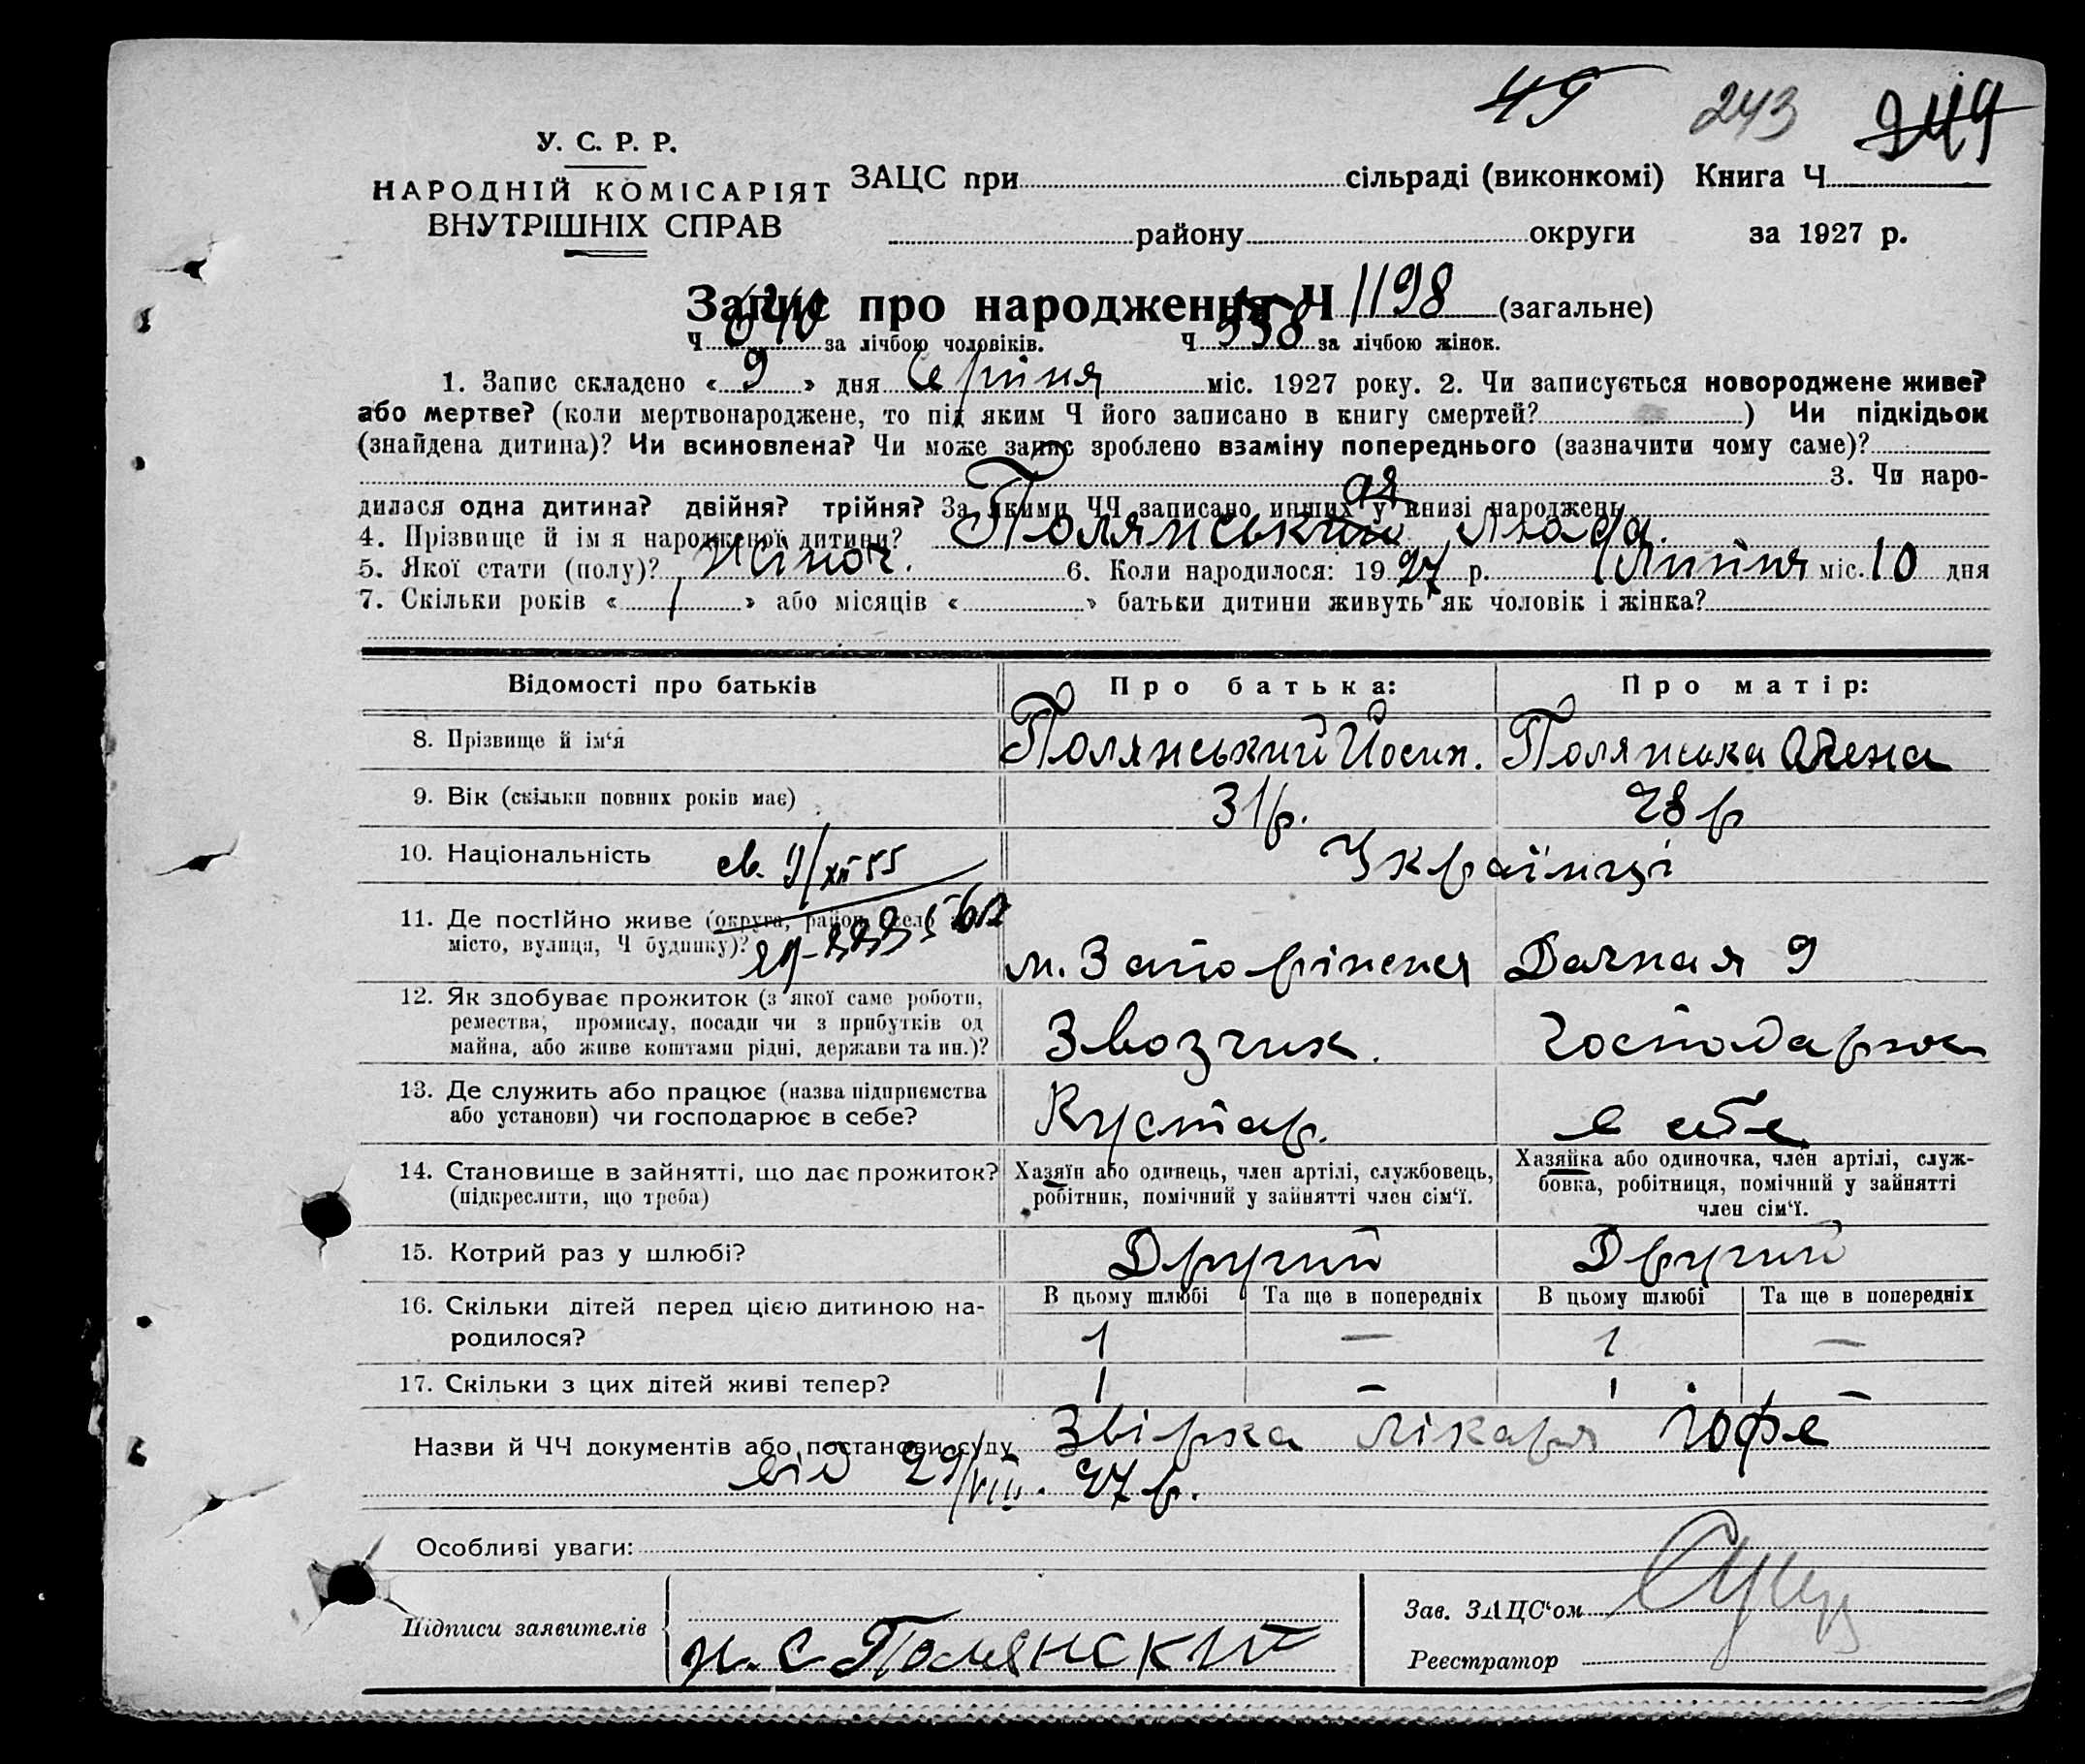 45 243 249
У. С. Р. Р.
НАРОДНІЙ КОМІСАРІЯТ
ВНУТРІШНІХ СПРАВ
ЗАЦС при сільраді (виконкомі) Книга Ч
району округи за 1927 р.
Запис про народження Ч 1198 (загальне)
Ч 640 за лічбою чоловіків. Ч 558 за лічбою жінок.
1. Запис складено « 9 » дня Серпня міс. 1927 року. 2. Чи записується новороджене живе?
або мертве? (коли мертвонароджене, то під яким Ч його записано в книгу смертей? ) Чи підкідьок
(знайдена дитина)? Чи всиновлена? Чи може запис зроблено взаміну попереднього (зазначити чому саме)?
3. Чи наро-
дилася одна дитина? двійня? трійня? За якими ЧЧ записано инших у книзі народжень
4. Прізвище й ім я народженої дитини? Полянський ая Люда.
5. Якої стати (полу)? Жіноч. 6. Коли народилося: 1927 р. Липня міс. 10 дня
7. Скільки років « 1 » або місяців « » батьки дитини живуть як чоловік і жінка?
Відомості про батьків Про батька: Про матір:
8. Прізвище й ім‘я Полянський Йосип. Полянська Олена
9. Вік (скільки повних років має) 31 р. 28 р
10. Національність св. 9/XII 55 Українці
11. Де постійно живе (округа, район, село або
місто, вулиця, Ч будинку)? м. Запоріжжя Дачная 9
12. Як здобуває прожиток (з якої саме роботи,
ремества, промислу, посади чи з прибутків од
майна, або живе коштами рідні, держави та ин.)? Звозчик. Господарює
13. Де служить або працює (назва підприємства
або установи) чи господарює в себе? Кустар. в себе
14. Становище в зайнятті, що дає прожиток?
(підкреслити, що треба)
Хазяїн або одинець, член артілі, службовець,
робітник, помічний у зайнятті член сім‘ї.
Хазяйка або одиночка, член артілі, служ-
бовка, робітниця, помічний у зайнятті
член сім‘ї.
15. Котрий раз у шлюбі? Другий Другий
16. Скільки дітей перед цією дитиною на-
родилося?
В цьому шлюбі Та ще в попередніх В цьому шлюбі Та ще в попередніх
1 — 1 —
17. Скільки з цих дітей живі тепер? 1 — 1 —
Назви й ЧЧ документів або постанови суду Звірка лікаря Іофе
від 29/VIII. 27 р.
Особливі уваги:
Підписи заявителів
и. с Полянский
Зав. ЗАЦС‘ом
Реєстратор